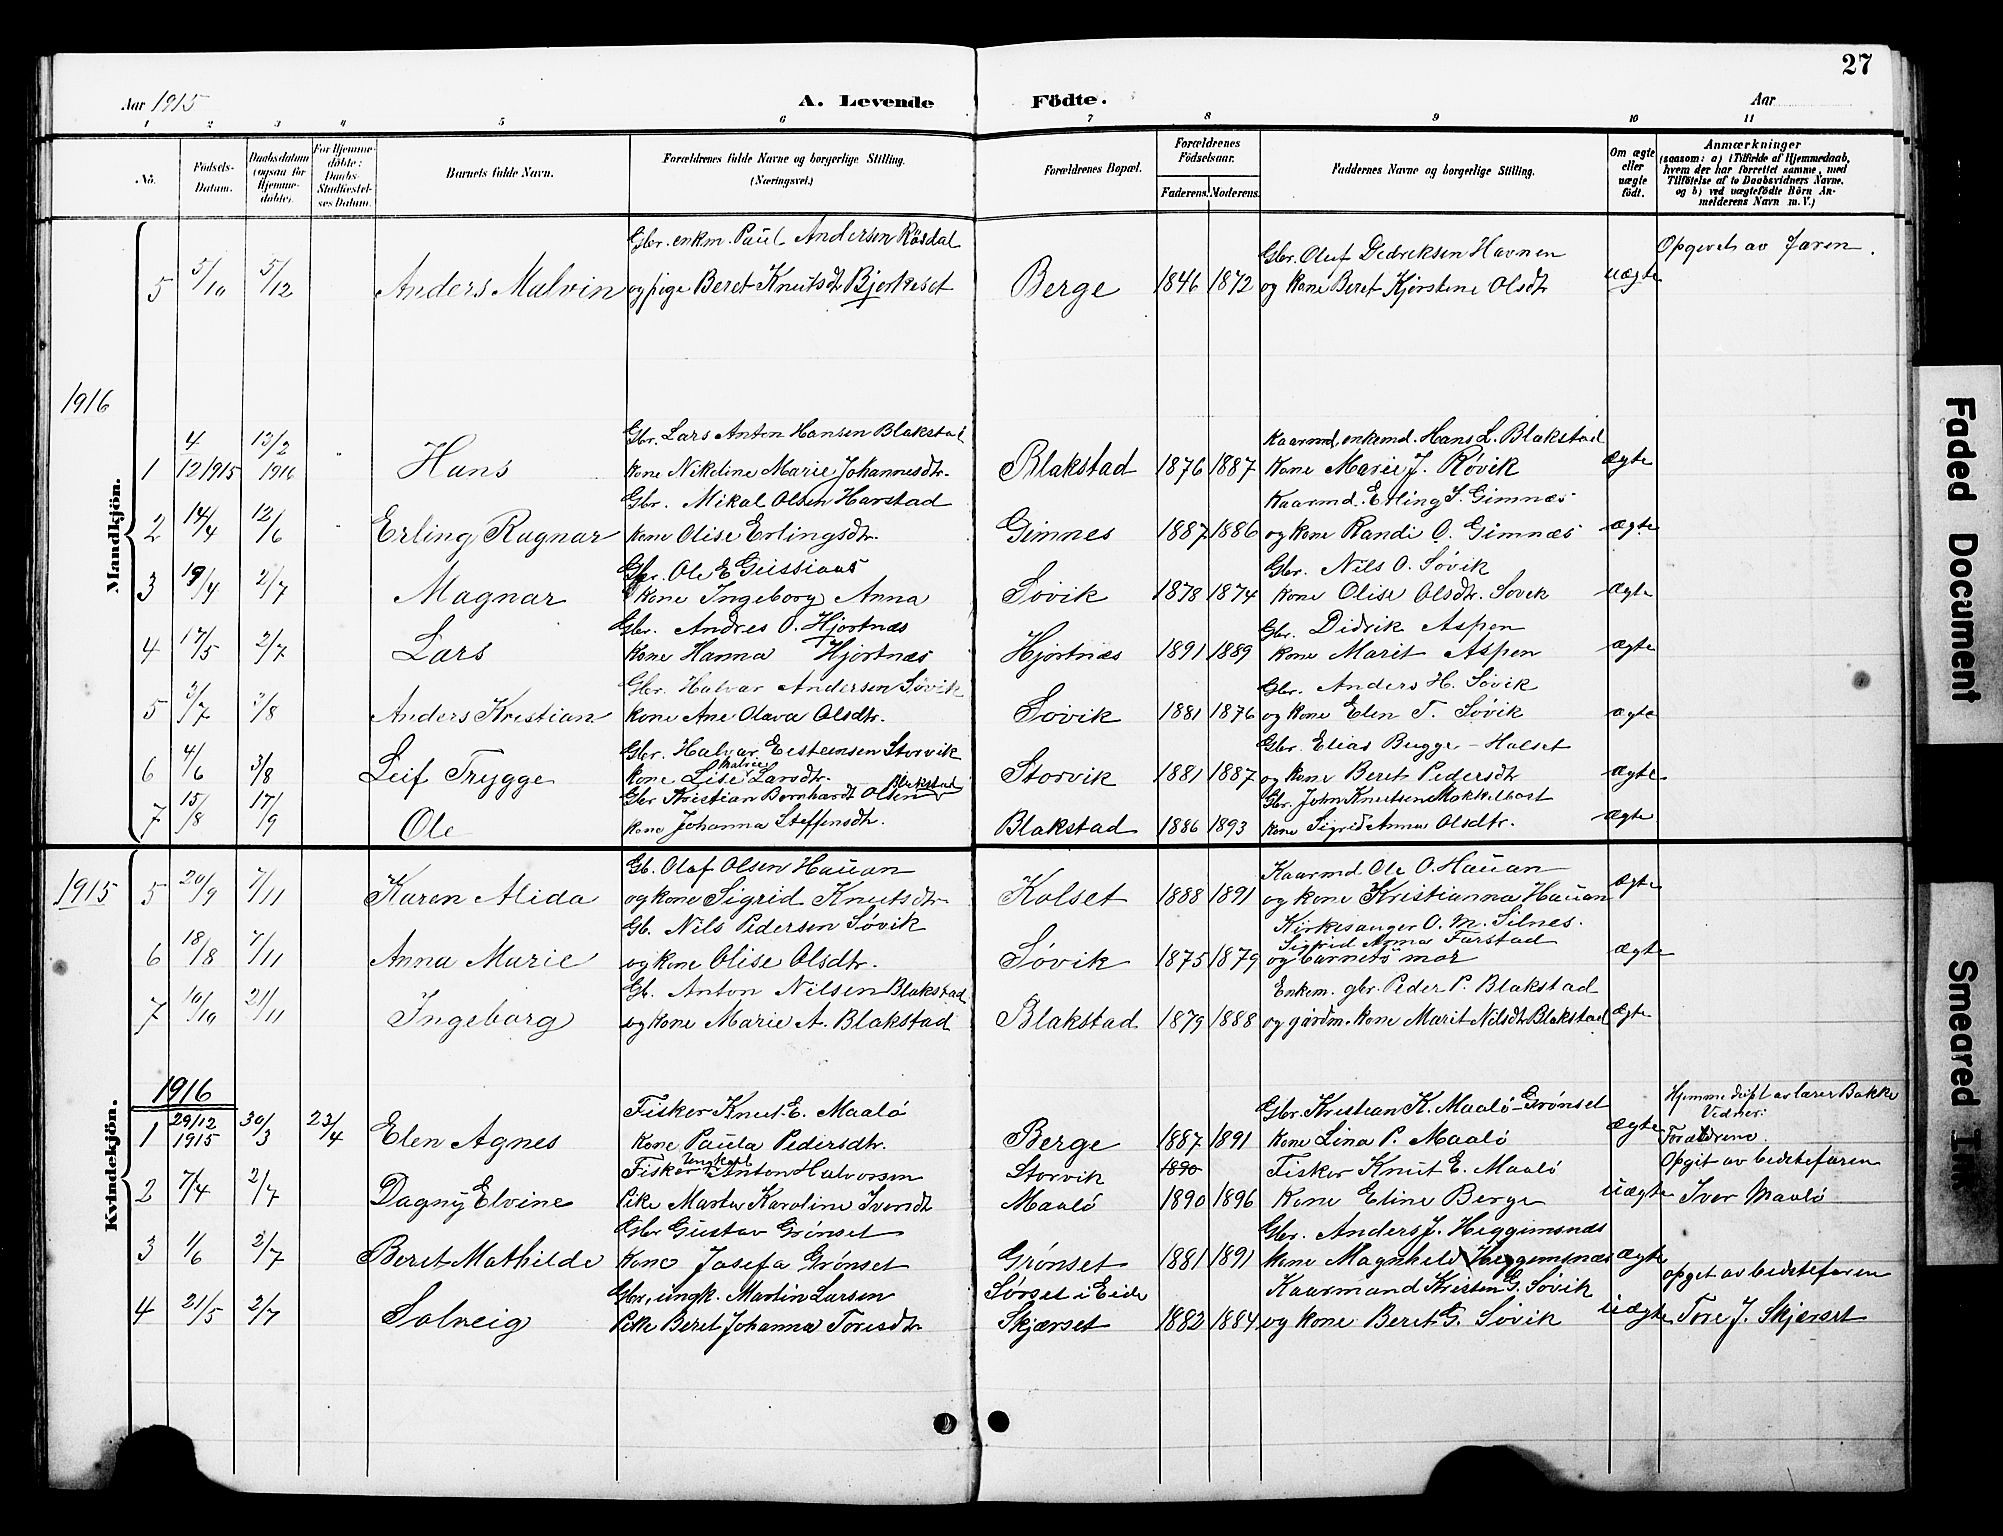 27
Aar 1915
A. Levende Födte.
Aar
1 2 3 4 5 6 7 8 9 10 11
No.
Födsels-Datum.
Daabsdatum (ogsaa for Hjemme-døbte).
For Hjemme-døbte: Daabs-Stadfæstel-ses Datum.
Barnets fulde Navn.
Forældrenes fulde Navne og borgerlige Stilling. (Næringsvei.)
Forældrenes Bopæl.
Forældrenes Födselsaar.
Faderens. Moderens.
Faddernes Navne og borgerlige Stilling.
Om ægte eller uægte født.
Anmærkninger
(saasom: a) i Tilfælde af Hjemmedaab, hvem der har forrettet samme, med Tilföielse af to Daabsvidners Navne, og b) ved uægtefödte Börn An-melderens Navn m. V.)
Mandkjön.
Gbr. enkm. Paul Andersen Rösdal Gbr. Oluf Dedreksen Havnen Opgivet av faren.
5 5/10 5/12 Anders Malvin og pige Beret Knutsdt Bjerkeset Berge 1846 1872 og kone Beret Kjerstene Olsdtr uægte
1916
4 13/2 Gbr. Lars Anton Hansen Blakstad Kaarmd, enkemd. Hans L. Blakstad
1 12 1915 1916 " Hans kone Nikoline Marie Johannesdtr. Blakstad 1876 1887 Kone Marie J. Røvik ægte
Gbr. Mikal Olsen Harstad Kaarmd. Erling I. Gimnæs
2 14/4 12/6 " Erling Ragnar kone Olise Erlingsdtr. Gimnes 1887 1886 og kone Randi O. Gimnæs ægte
Gbr. Ole E Gussiaas Gbr. Nils O. Søvik
3 19/4 2/7 Magnar kone Ingeborg Anna Søvik 1878 1874 kone Olise Olsdtr. Søvik ægte
Gbr. Andres O. Hjortnæs Gbr. Didrik Aspen
4 17/5 2/7 Lars kone Hanna Hjortnæs Hjørtnæs 1891 1889 kone Marit Aspen ægte
Gbr. Halvar Andersen Søvik Gbr. Anders H. Søvik
5 3/7 3/8 Anders Kristian kone Ane Olava Olsdtr. Søvik 1881 1876 og kone Elen T. Søvik ægte
Gbr. Halvar Eesteinsen Storvik Gbr. Elias Bugge - Holset
6 4/6 3/8 Leif Trygge kone Lise Marie Larsdtr. Storvik 1881 1887 og kone Beret Pedersdtr ægte
Gbr Kristian Bernhardt Olsen Blakstad Gbr. John Knutsen Mokkelbost
7 15/8 17/9 Ole kone Johanna Steffensdtr. Blakstad 1886 1893 kone Sigrid Anna Olsdtr. ægte
Kvindekjön.
Gb. Olaf Olsen Hauan Kaarmd Ole O. Hauan
1915 5 20/9 7/11 Karen Alida og kone Sigrid Knutsdtr Kolset 1888 1891 og kone Kristianna Hauan ægte
Gb. Nils Pedersen Søvik Kirkesanger O. M. Silnes.
Sigrid Anna Farstad
6 18/8 7/11 Anna Marie og kone Olise Olsdtr. Søvik 1875 1879 og barnets mor ægte
Gb. Anton Nilsen Blakstad Enkem. gbr. Peder P. Blakstad
7 10/10 21/11 Ingeborg og kone Marie A. Blakstad Blakstad 1879 1888 og gårdm. kone Marit Nilsdt Blakstad ægte
1916
29/12 Fisker Knut E. Maalø Gbr. Kristian K. Maalø-Grønset Hjemmedøpt av lærer Bakke
Vidner:
1 1915 30/3 23/4 Elen Agnes kone Paula Pedersdtr. Berge 1887 1891 kone Lina P. Maalø ægte Forældrene.
Fisker Ungkarl Anton Halvorsen Storvik 1890 Fisker Knut E. Maalø Opgit av bedstefaren
2 7/4 2/7 Dagny Elvine Pike Marta Karoline Iversdt Maalø 1890 1896 Kone Eline Berge uægte Iver Maalø
Gbr Gustav Grønset Gbr. Anders J. Heggemsnæs
3 1/6 2/7 Beret Mathilde Kone Josefa Grønset Grønset 1881 1891 kone Magnhild Heggemsnæs ægte
Gbr, ungk. Martin Larsen Sørset i Eide Kaarmand Kristen G. Søvik opgit av bedstefaren
4 21/5 2/7 Solveig Pike Beret Johanna Toresdtr Skjærset 1882 1884 og kone Beret G. Søvik uægte Tore J. Skjerset
Faded Document
Smeared Ink